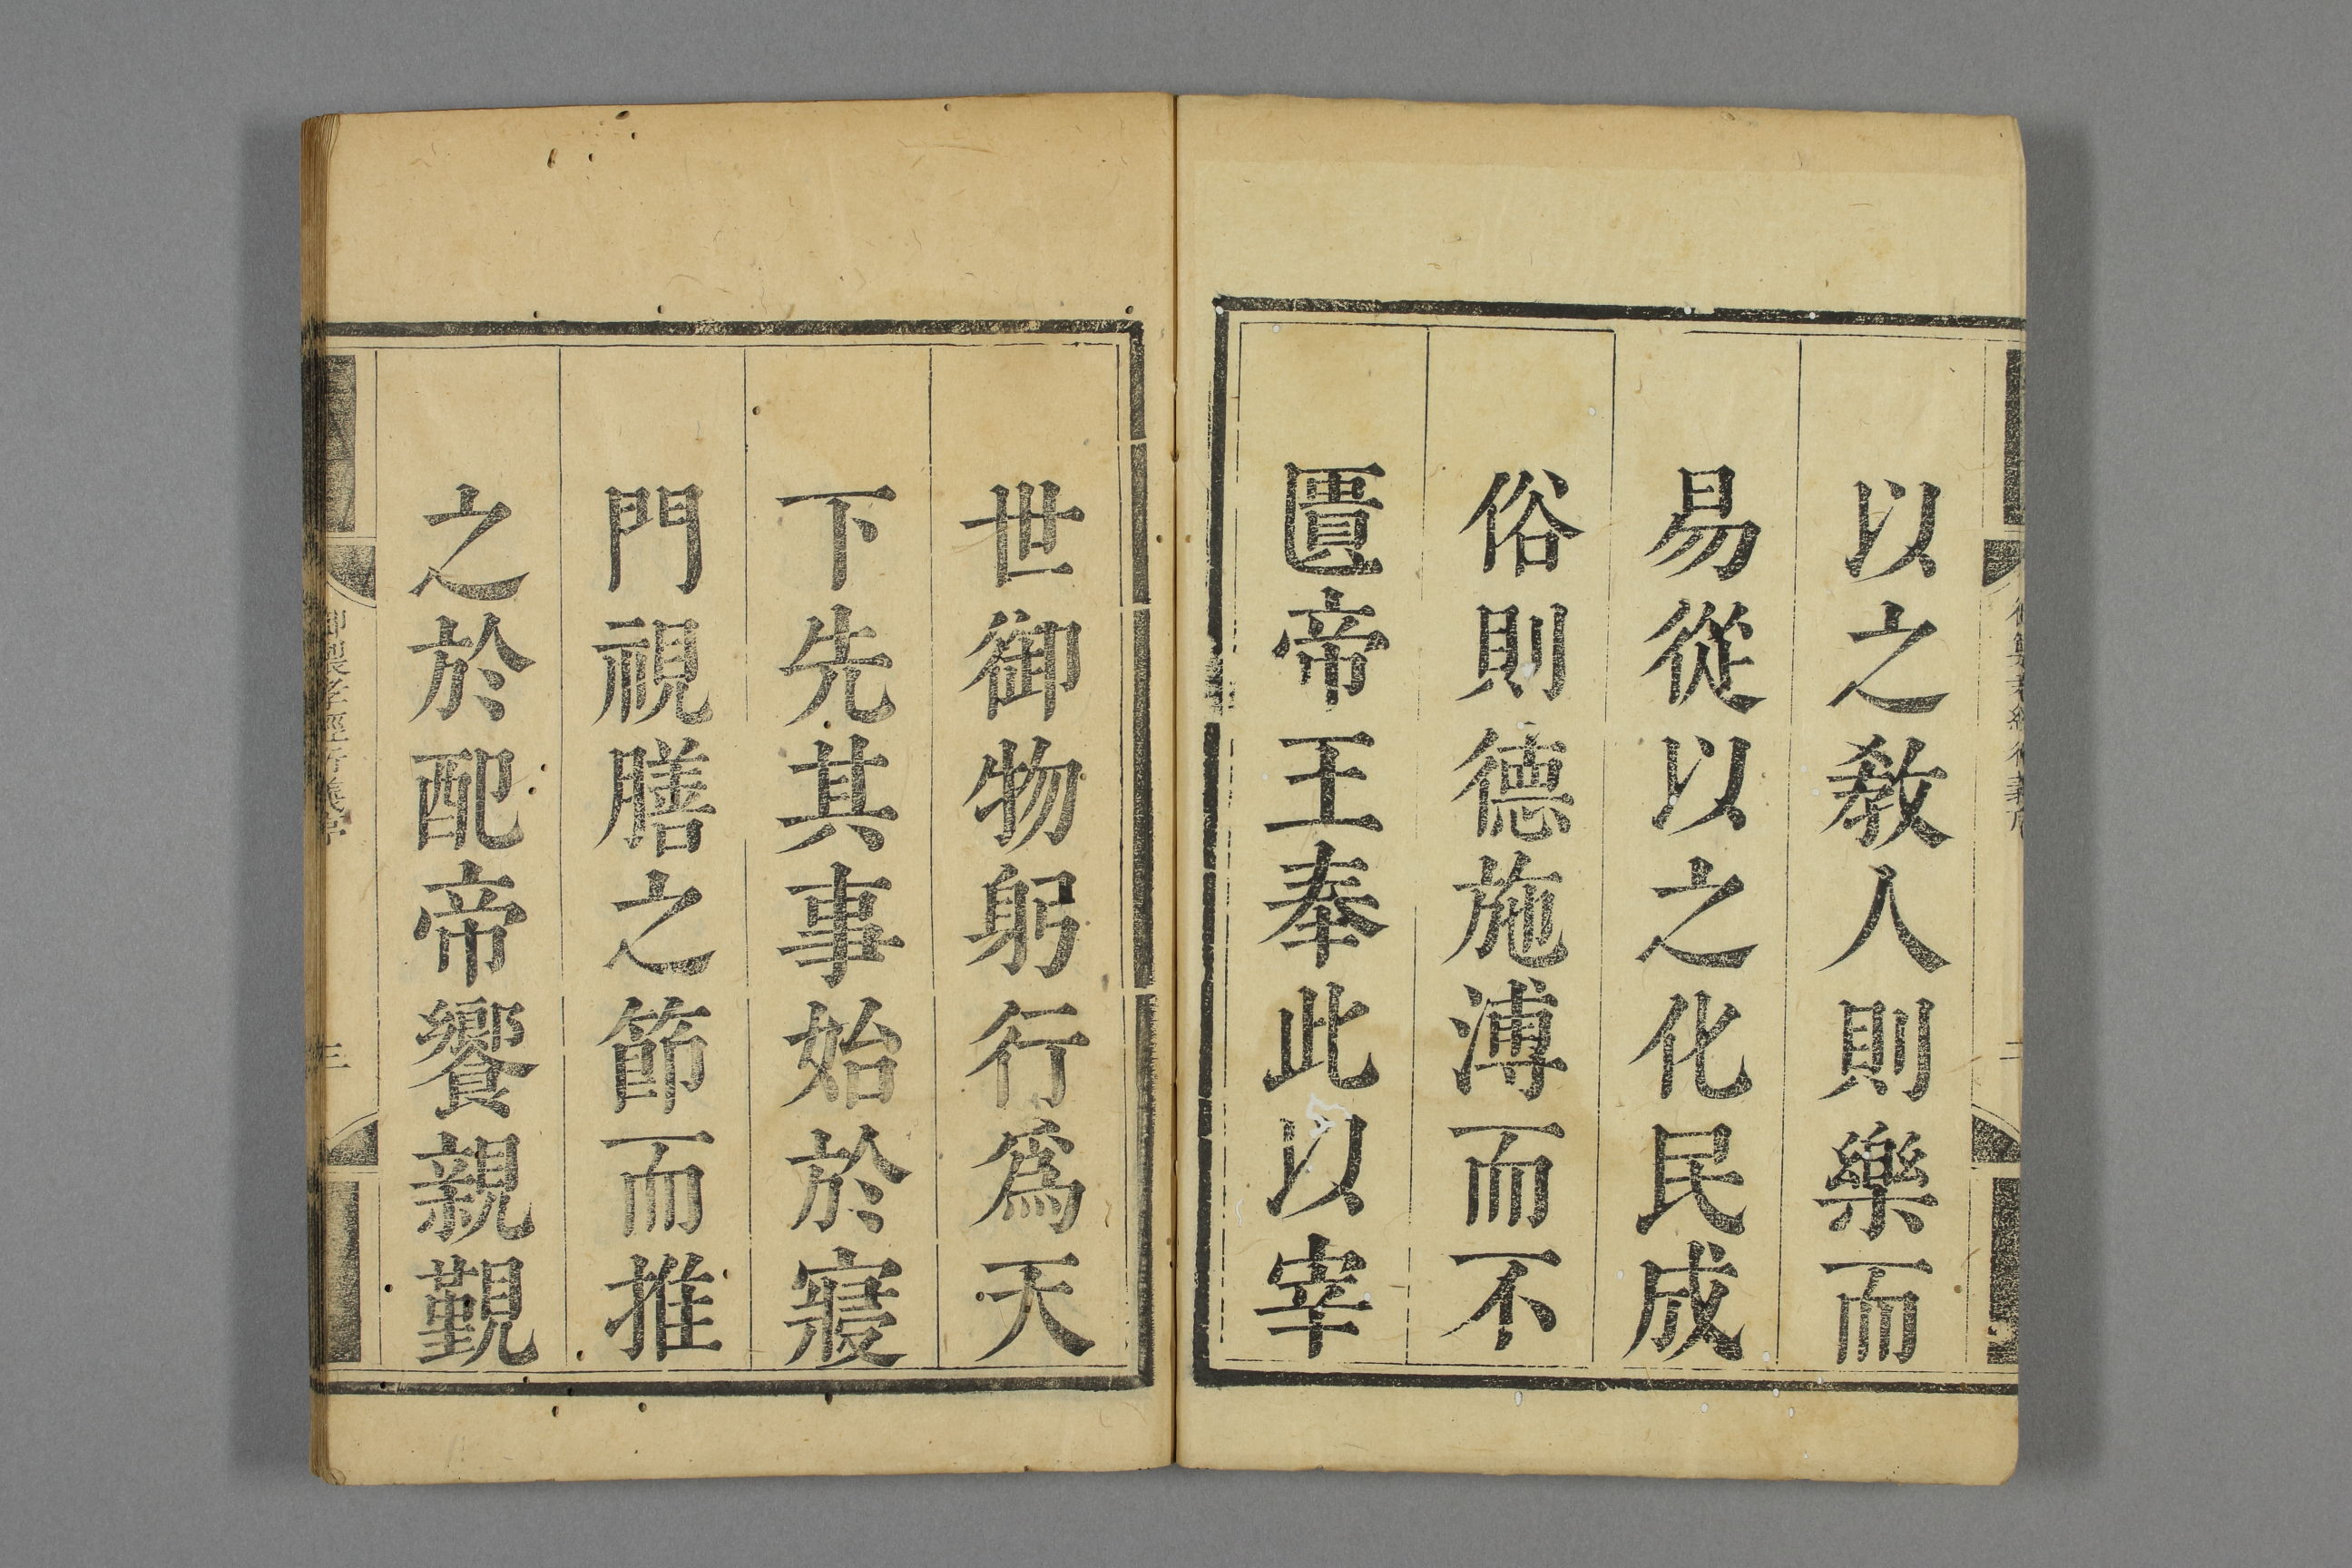 以之教人則樂而
易從以之化民成
俗則德施溥而不
匱帝王奉此以宰
世御物躬行爲天
下先其事始於寢
門視膳之節而推
之於配帝饗親覲
三